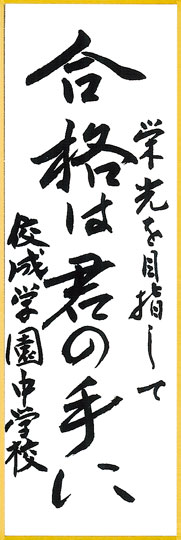 栄光を目指して
合格は君の手に
佼成学園中学校